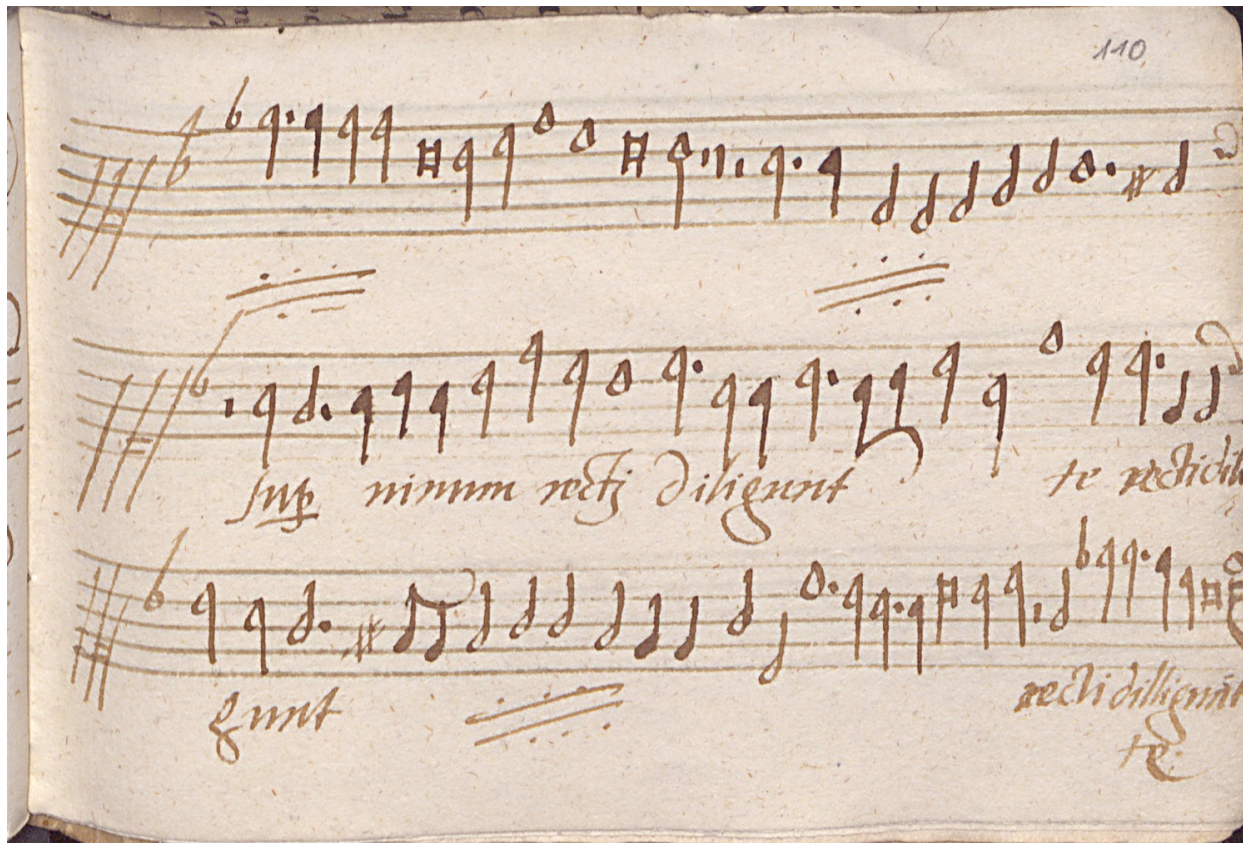 110
sup ninum rectj diligunt te recti dili
gunt recti dilligunt
te